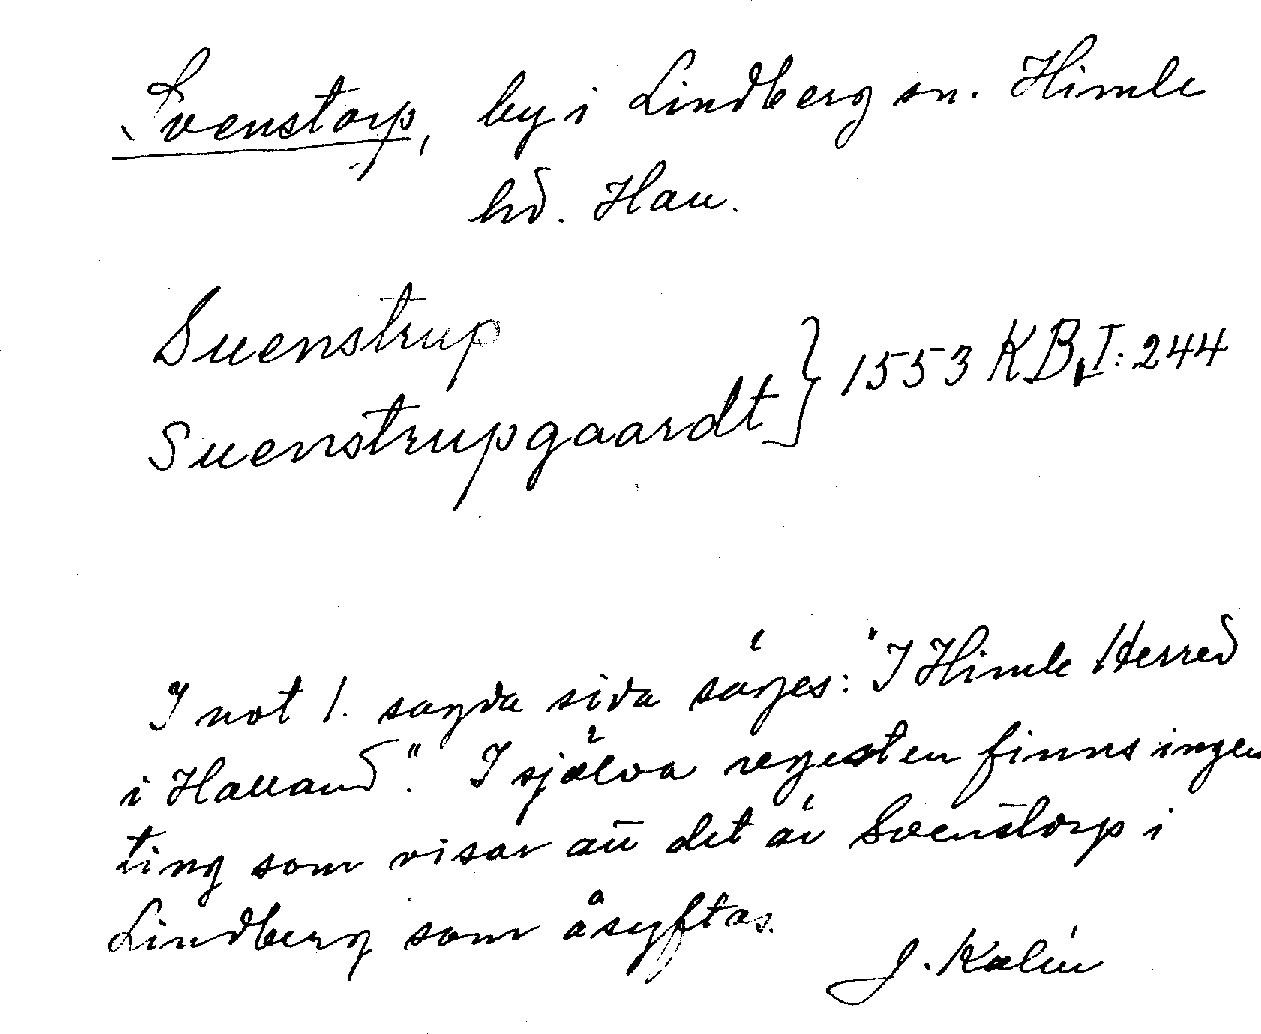 Svenstorp, by i Lindberg sn. Himle
hd. Hall.
Suenstrup
Suenstrupgaardt } 1553 KB, I: 244
I not 1. sagda sida säges: "I Himle Herred
i Halland". I själva regesten finns ingen
ting som visar att det är Svenstorp i
Lindberg som åsyftas.
J. Kalén